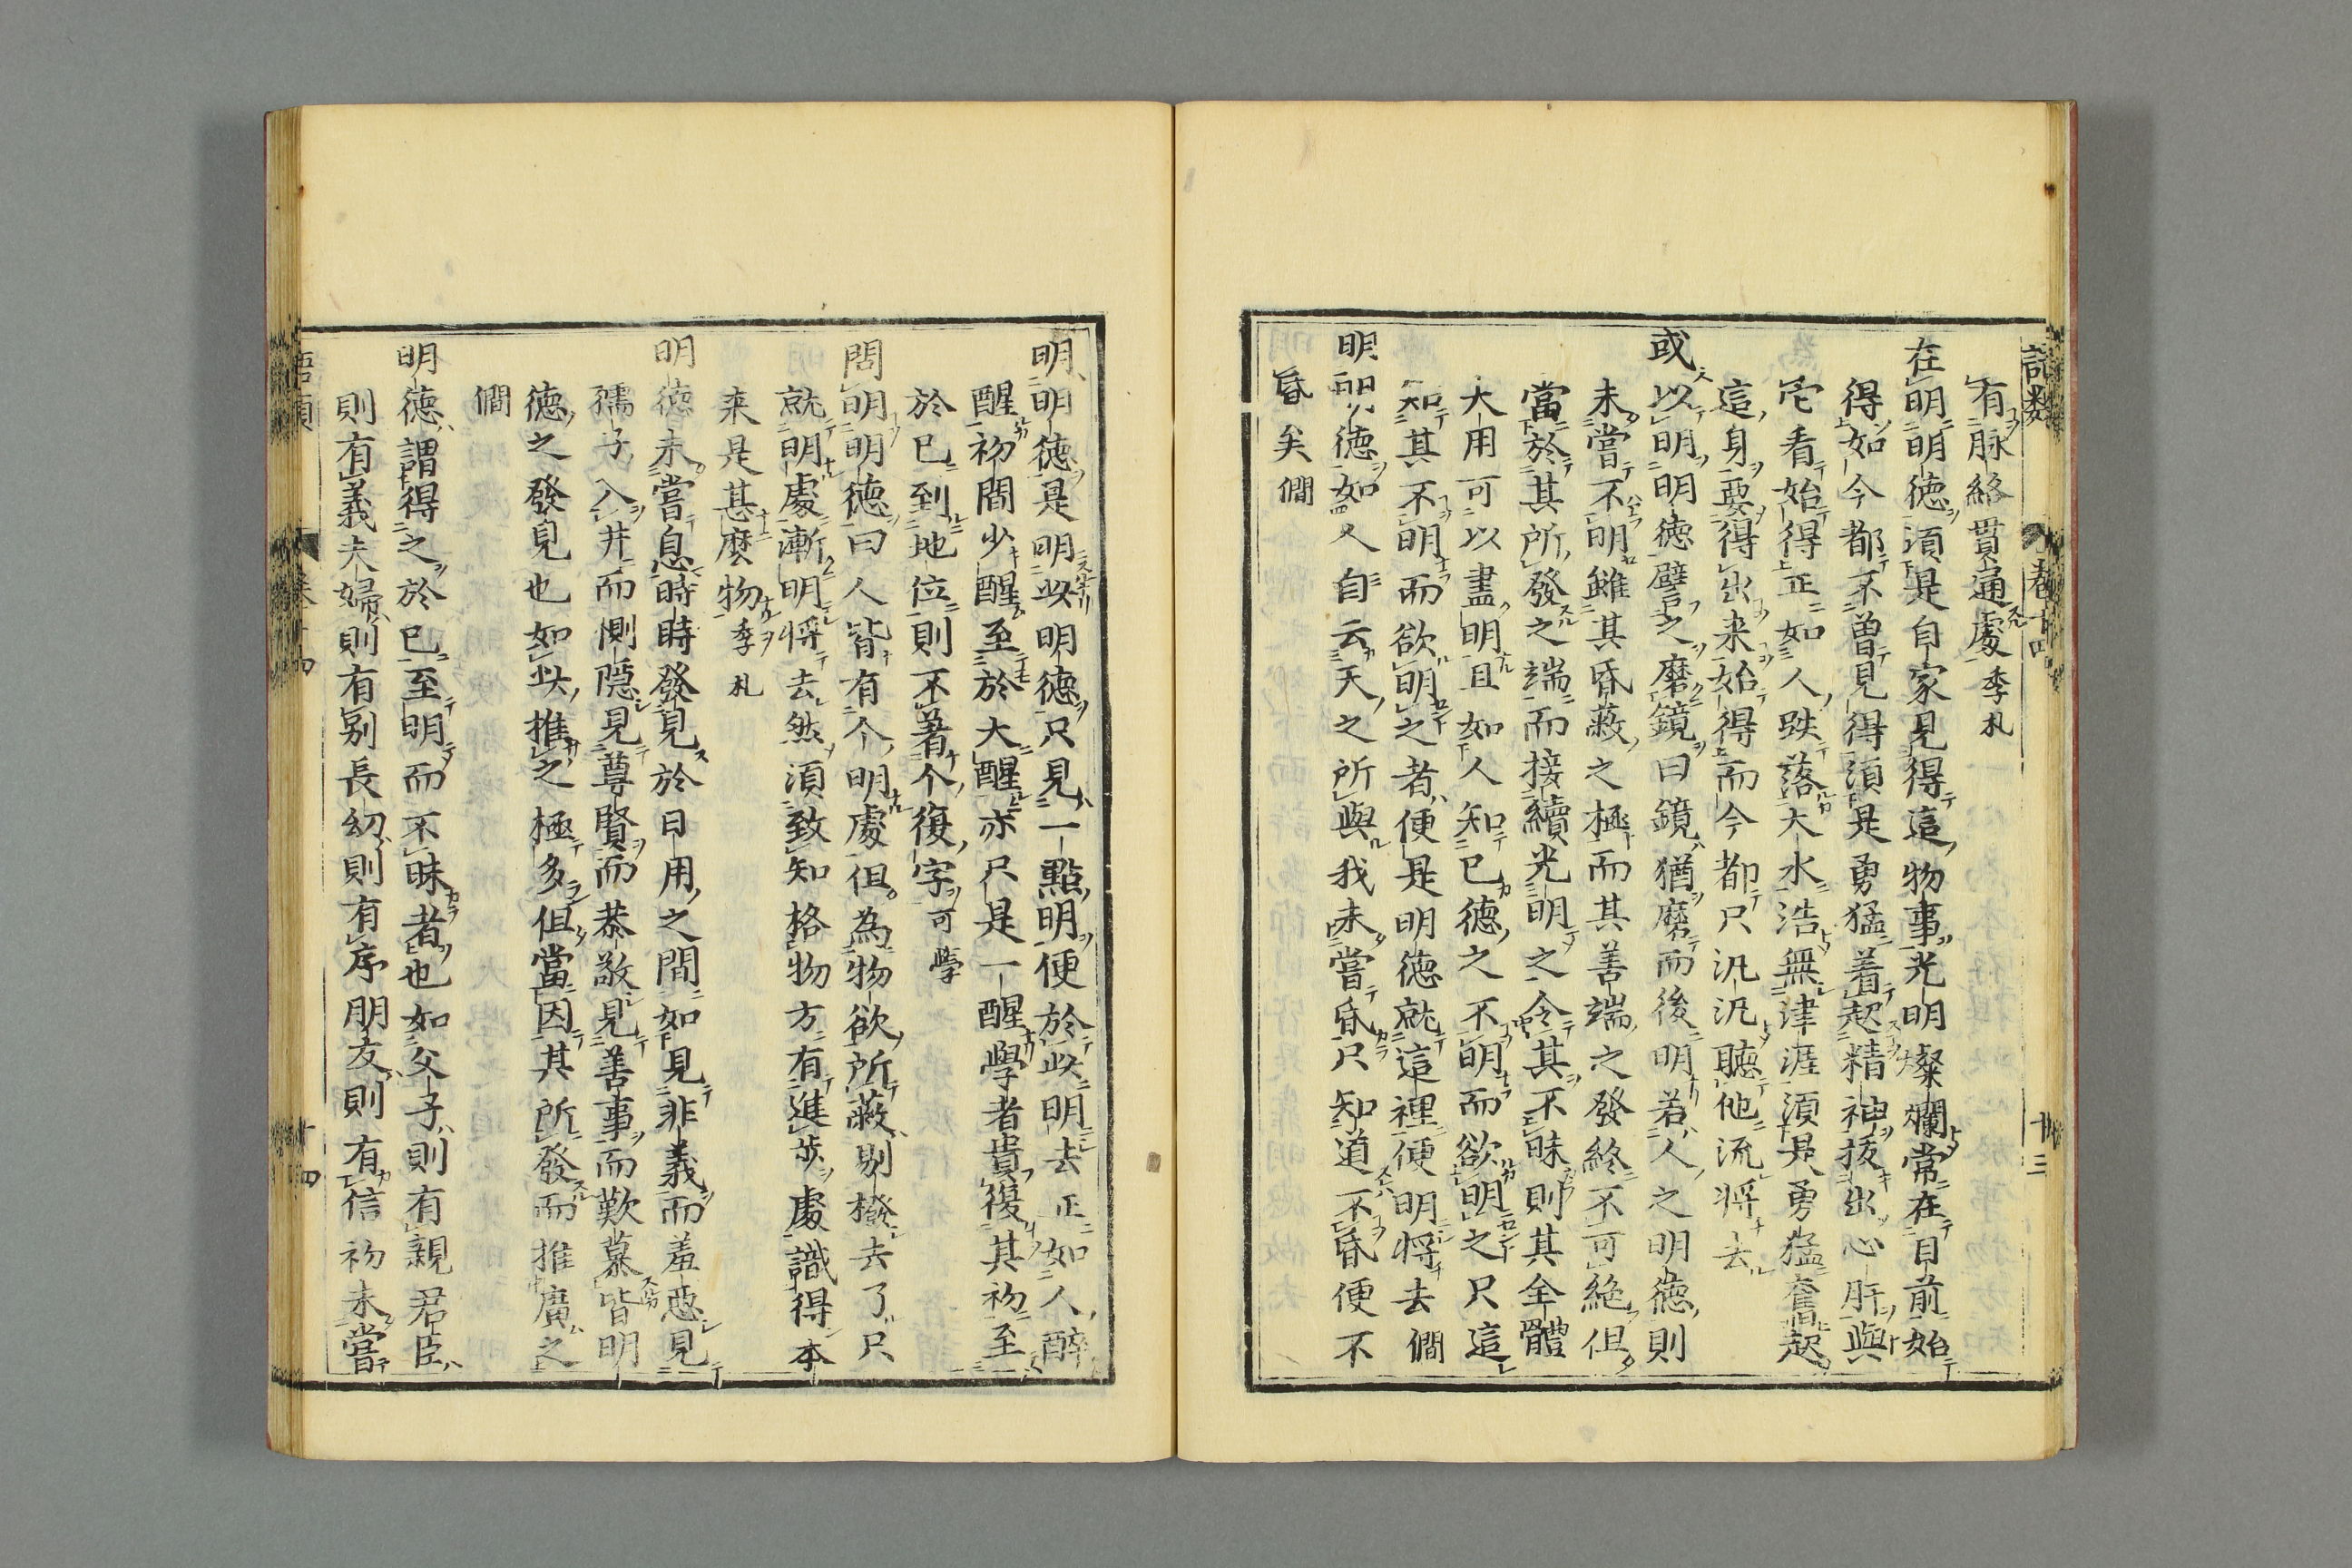 有脉絡貫通處季札
在明明德須是自家見得這物事光明燦爛常在目前始
得如今都不曾見得須是勇猛着起精神拔出心肝與
它看始得正如人跌落大水浩無津涯須是勇猛奮起
這身要得出来始得而今都只汎汎聽他流将去
或以明明德譬之磨鏡曰鏡猶磨而後明若人之明德則
未嘗不明雖其昏蔽之極而其善端之發終不可絶但
當於其所發之端而接續光明之令其不昧則其全體
大用可以盡明且如人知已德之不明而欲明之只這
知其不明而欲明之者便是明德就這裡便明将去僩
明明德如人自云天之所與我未嘗昏只知道不昏便不
昏矣僩
卷十四
十三
明明德是明此明德只見一點明便於此明去正如人醉
醒初間少醒至於大醒亦只是一醒學者貴復其初至
於已到地位則不著个復字可學
問明明德曰人皆有个明處但為物欲所蔽剔撥去了只
就明處漸明将去然須致知格物方有進步處識得本
来是甚麼物季札
明德未嘗息時時發見於日用之間如見非義而羞惡見
孺子入井而惻隱見尊賢而恭敬見善事而歎慕皆明
德之發見也如此推之極多但當因其所發而推廣之
僩
明德謂得之於已至明而不昧者也如父子則有親君臣
則有義夫婦則有别長幼則有序朋友則有信初未嘗
語類
卷十四
十四